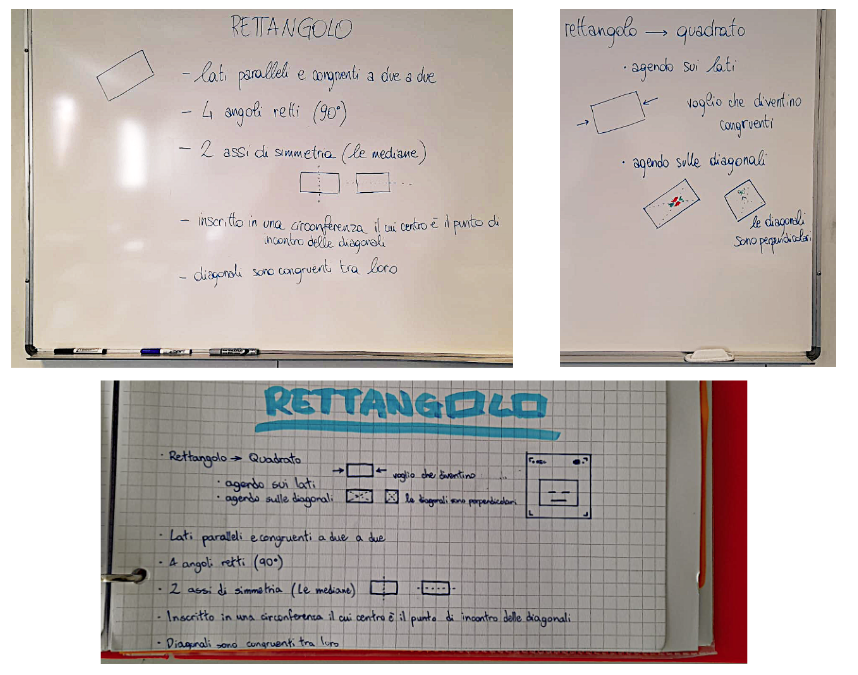 RETTANGOLO
- lati paralleli e congruenti a due a due
- 4 angoli retti (90°)
- 2 assi di simmetria (le mediane)
- inscritto in una circonferenza il cui centro è il punto di
incontro delle diagonali
- diagonali sono congruenti tra loro
rettangolo → quadrato
· agendo sui lati
voglio che diventino
congruenti
· agendo sulle diagonali
le diagonali
sono perpendicolari
RETTANGOLO
· Rettangolo → Quadrato
· agendo sui lati
voglio che diventino ...
· agendo sulle diagonali
le diagonali sono perpendicolari
· Lati paralleli e congruenti a due a due
· 4 angoli retti (90°)
· 2 assi di simmetria (Le mediane)
· Inscritto in una circonferenza il cui centro è il punto di incontro delle diagonali
· Diagonali sono congruenti tra loro